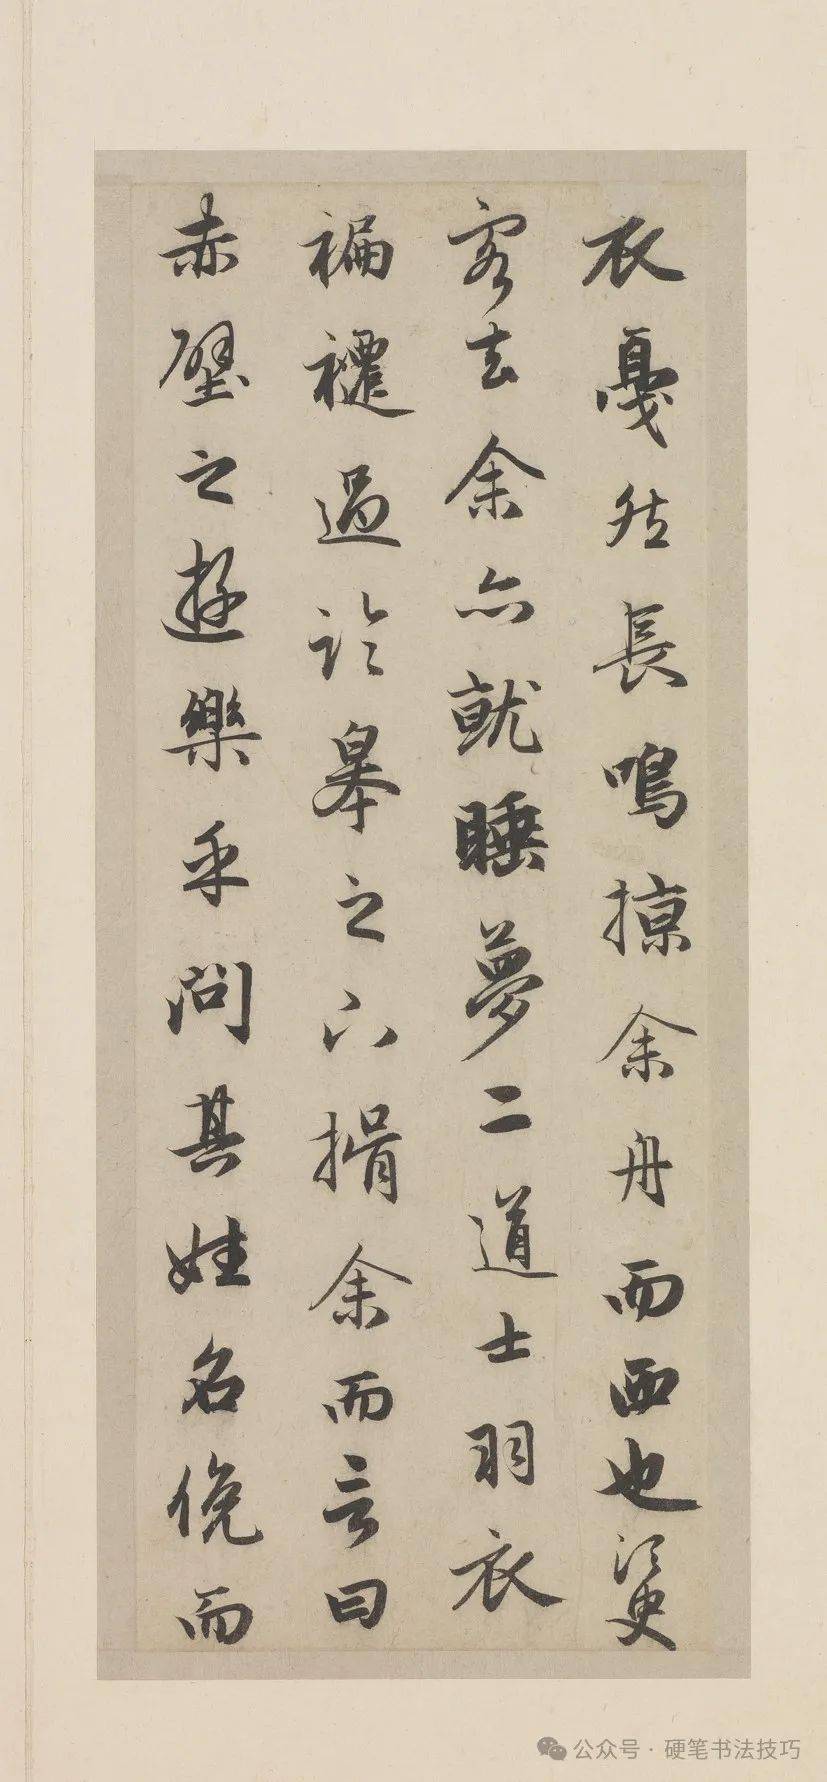 衣戛然長鳴掠余舟而西也須臾
客去余亦就睡夢二道士羽衣
褊褼過臨皋之下揖余而言曰
赤壁之遊樂乎問其姓名俛而
公众号·硬笔书法技巧